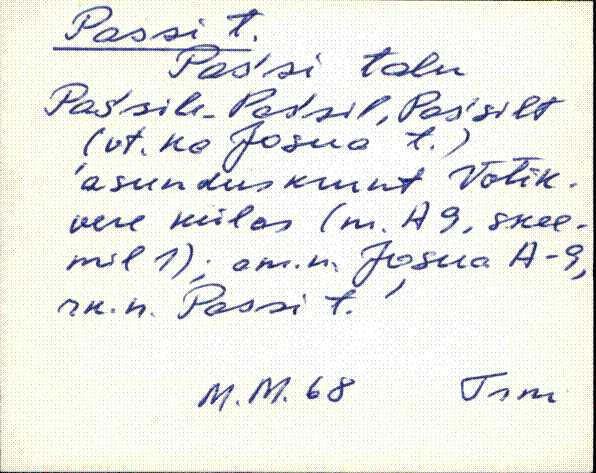 Passi t.
Paśsi talu
Paśsile, Paśsil, Paśsilt
(vt. ka Josua t.)
'asunduskrunt Võtik-
vere külas (m. A 9, skee-
mil 1); am.n. Josua A-9,
rk.n. Passi t.'
M.M. 68 Trm